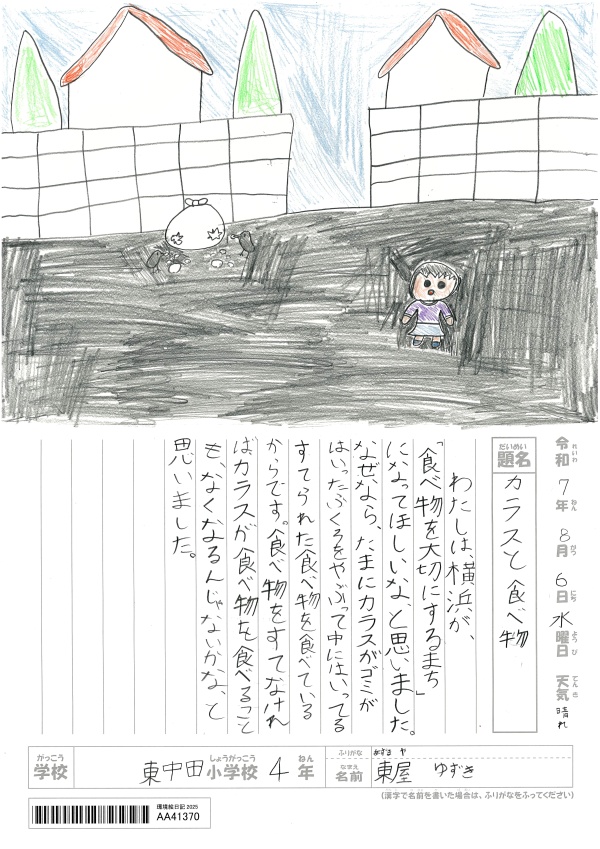 令和7年8月6日水曜日 天気晴れ
れいわ ねん がつ にち ようび てんき
だいめい
題名 カラスと食べ物
わたしは、横浜が、
「食べ物を大切にするまち」
になってほしいな、と思いました。
なぜなら、たまにカラスがゴミが
はいったぶくろをやぶって中にはいってる
すてられた食べ物を食べている
からです。食べ物をすてなけれ
ばカラスが食べ物を食べること
も、なくなるんじゃないかな、と
思いました。
がっこう しょうがっこう ねん
学校 東中田小学校 4年
ふりがな あずま や
なまえ
名前 東屋 ゆずき
(漢字で名前を書いた場合は、ふりがなをふってください)
環境絵日記 2025
AA41370